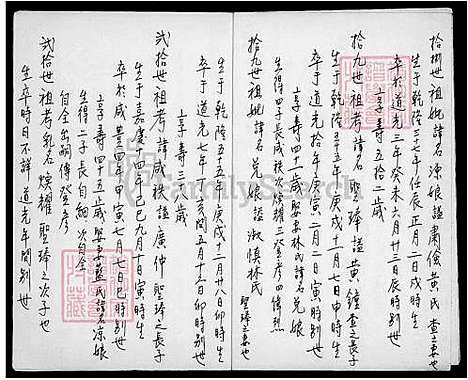 拾捌世祖妣諱名涼娘謚肅儉黃氏
生于乾隆三十七年壬辰正月二日戌時生
卒於道光三年癸未六月廿三日辰時別世
享壽五拾二歲
拾九世祖考諱名聖瑋謚黃鐘
生于乾隆五十五年庚戌十一月七日申時生
卒于道光拾年庚寅二月二日寅時別世
享壽四十一歲 娶妻林氏諱名兌娘
生得四子長成秩 次煥耀三登彥四偉烈
拾九世祖妣諱名兌娘謚淑慎林氏
生于乾隆五十五年庚戌十二月廿八日卯時生
卒于道光七年丁亥閏五月十六日卯時別世
享壽三十八歲
貳拾世祖考諱成秩謚廣仲聖瑋之長子
生于嘉慶十四年己巳九月十日寅時生
卒於咸豐四年甲寅七月七日巳時別世
享壽四十五歲 娶妻藍氏諱名涼娘
生得二子長自細 次自全
自全出嗣傳登彥
貳拾世祖考乳名煥耀聖瑋之次子也
生卒時日不詳道光年間別世
FamilySearch